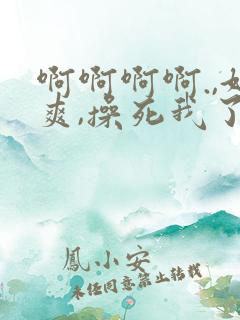 啊啊啊啊.,
爽,操死我了
鳳小安
未经同意禁止转载